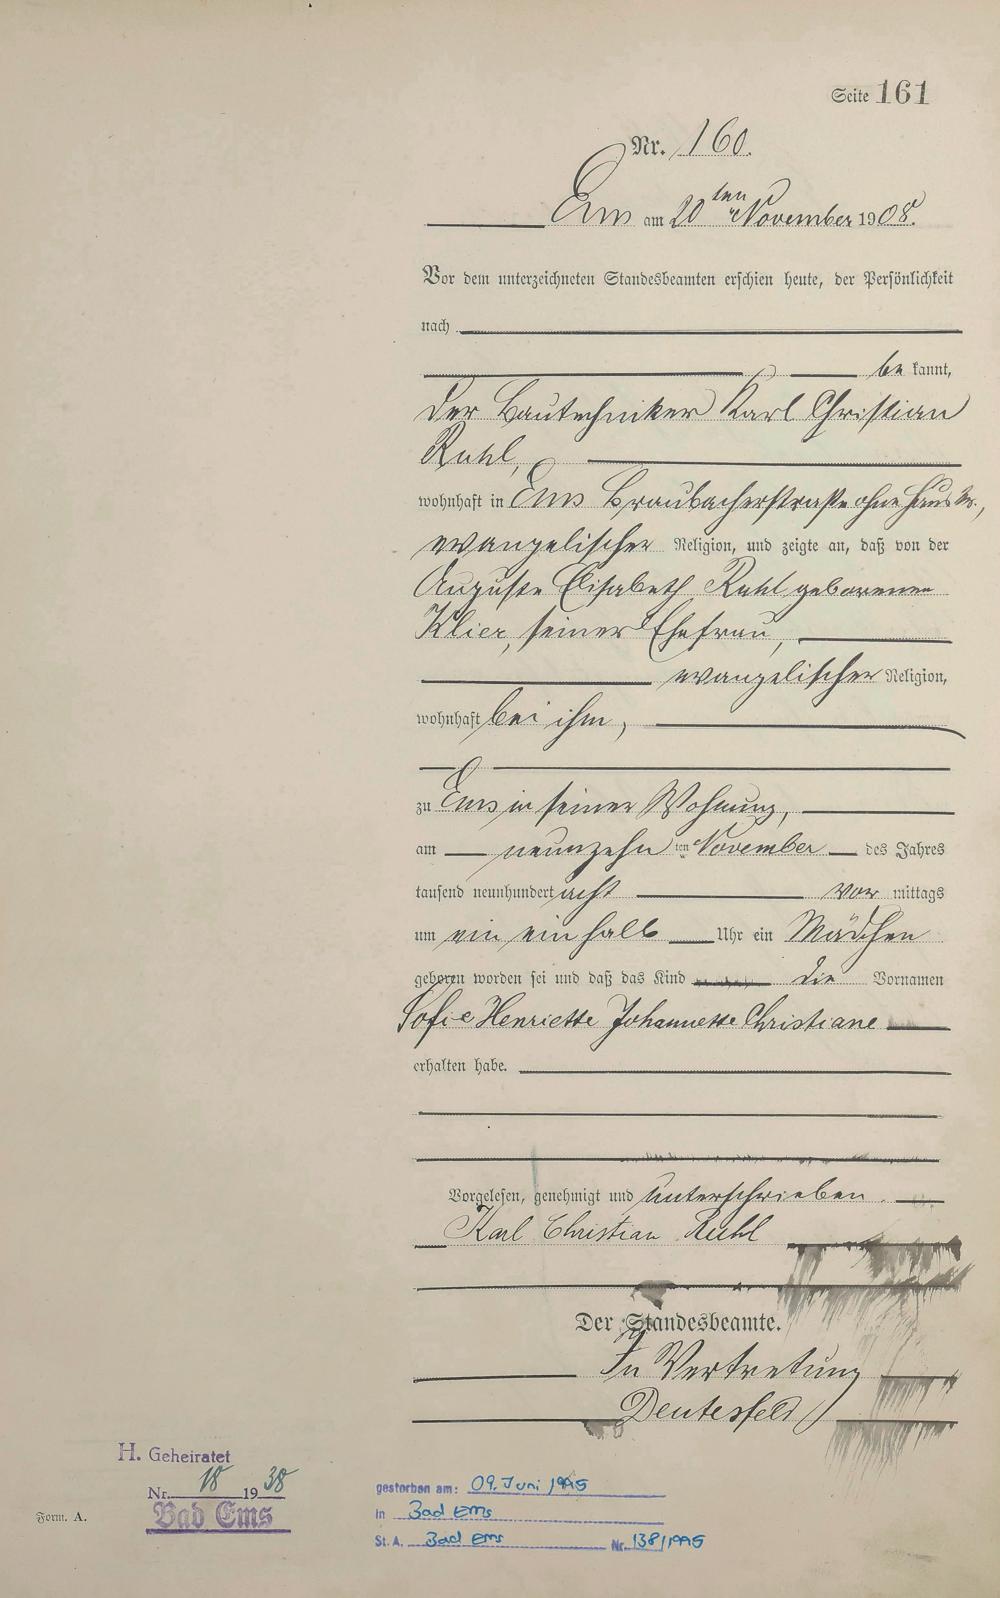 Seite 161
Nr. 160.
Ems am 20ten November 1908.
Vor dem unterzeichneten Standesbeamten erschien heute, der Persönlichkeit
nach
be kannt,
der Bautechniker Karl Christian
Ruhl,
wohnhaft in Ems Braubacherstraße ohne Haus Nr.,
evangelischer Religion, und zeigte an, daß von der
Auguste Elisabeth Ruhl geborenen
Klier, seiner Ehefrau,
evangelischer Religion,
wohnhaft bei ihm,
zu Ems in seiner Wohnung,
am neunzehn ten November des Jahres
tausend neunhundert acht vor mittags
um ein ein halb Uhr ein Mädchen
geboren worden sei und daß das Kind die Vornamen
Sofie Henriette Johannette Christiane
erhalten habe.
Vorgelesen, genehmigt und unterschrieben.
Karl Christian Ruhl
Der Standesbeamte.
In Vertretung
H. Geheiratet
Nr. 18 1938
Bad Ems
Form. A.
gestorben am: 09. Juni 1995
in Bad Ems
St. A. Bad Ems Nr. 138/1995